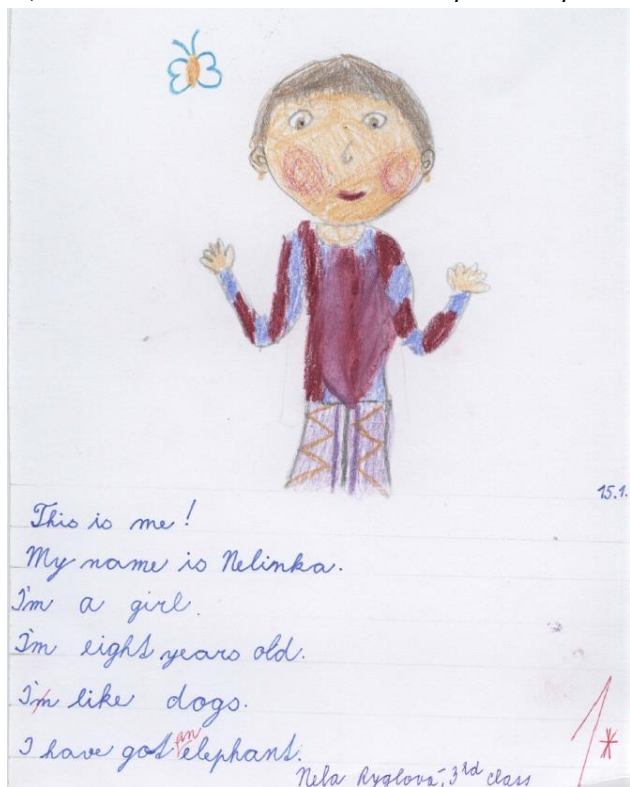 15.1.
This is me!
My name is Nelinka.
I'm a girl.
I'm eight years old.
I'm like dogs.
I have got an elephant.
1*
Nela Ryglová, 3rd class